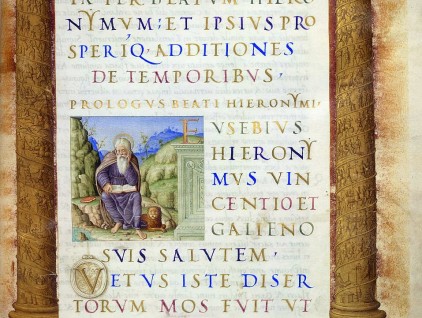 TA PER BEATUM HIERO
NYMUM: ET IPSIUS PRO
SPERIQ· ADDITIONES
DE TEMPORIBUS·
PROLOGVS BEATI HIERONYMI·
EUSEBIUS
HIERONY
MUS VIN
CENTIO ET
GALIENO
SUIS SALUTEM·
VETUS ISTE DISER
TORUM MOS FUIT UT